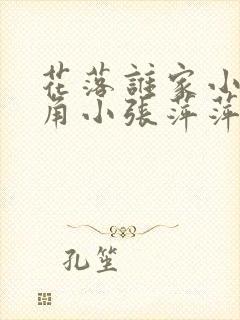 花落誰家小
角小張萍萍
孔笙